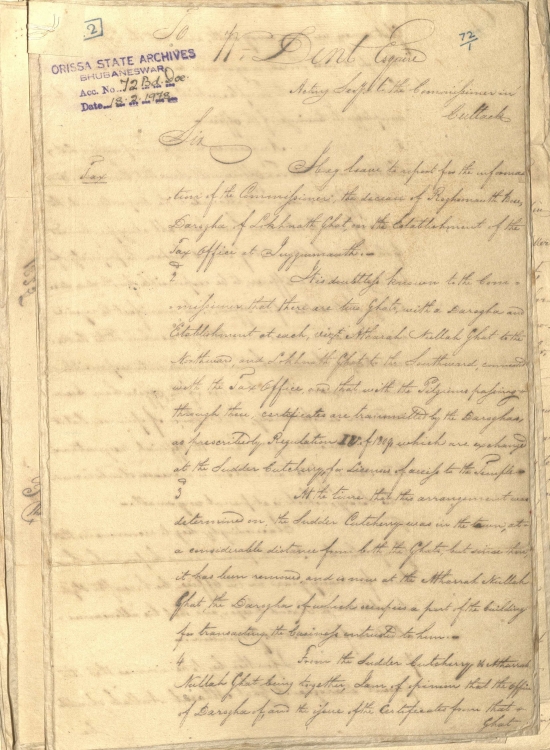 2
72/1
ORISSA STATE ARCHIVES
BHUBANESWAR
Acc. No. 72 Bd. Doc.
Date 18-2-1978
To W. Dent Esquire
Acting Secy. to the Commissioner in
Cuttack
Sir
Tax
I beg leave to report for the informa
tion of the Commissioner, the decease of
Darogha of Lokhnath Ghat, on the Establishment of the
Tax Office at Juggurnauth.
2 It is doubtless known to the Com
missioner that there are two Ghats, with a Darogha and
Establishment at each, vizt. Atharah Nullah Ghat to the
Northward, and Lokhnath Ghat to the Southward, connected
with the Tax Office, and that with the Pilgrims passing
through them, certificates are transmitted by the Daroghas,
as prescribed by Regulation IV of 1809, which are exchanged
at the Sudder Cutcherry for Licenses of access to the Temple
3 At the time that this arrangement was
determined on, the Sudder Cutcherry was in the town, at
a considerable distance from both the Ghats, but since then
it has been removed, and is now at the Atharah Nullah
Ghat, the Darogha of which occupies a part of the building
for transacting the business entrusted to him
4 From the Sudder Cutcherry & Atharah
Nullah Ghat being together, I am of opinion that the Office
of Darogha of, and the issue of the Certificates from that
Ghat